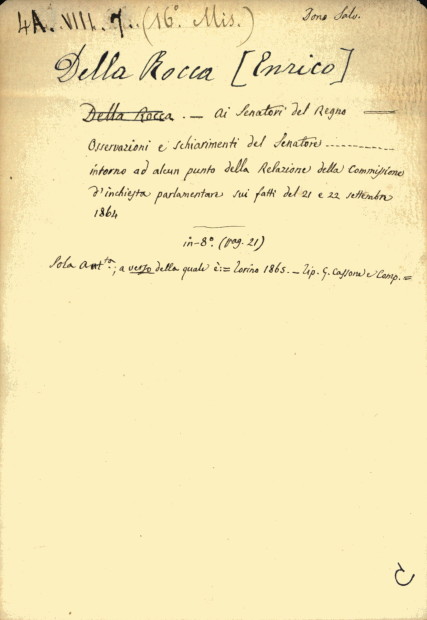 4A. VIII. 7. (16° Mis.) Dono Salv.
Della Rocca [Enrico]
Della Rocca. — Ai Senatori del Regno =
Osservazioni e schiarimenti del Senatore ............
intorno ad alcun punto della Relazione della Commissione
d'inchiesta parlamentare sui fatti del 21 e 22 settembre
1864
in-8°. (pag. 21)
Sola ant.ta; a verso della quale è: = Torino 1865. — Tip. G. Cassone e Comp. =